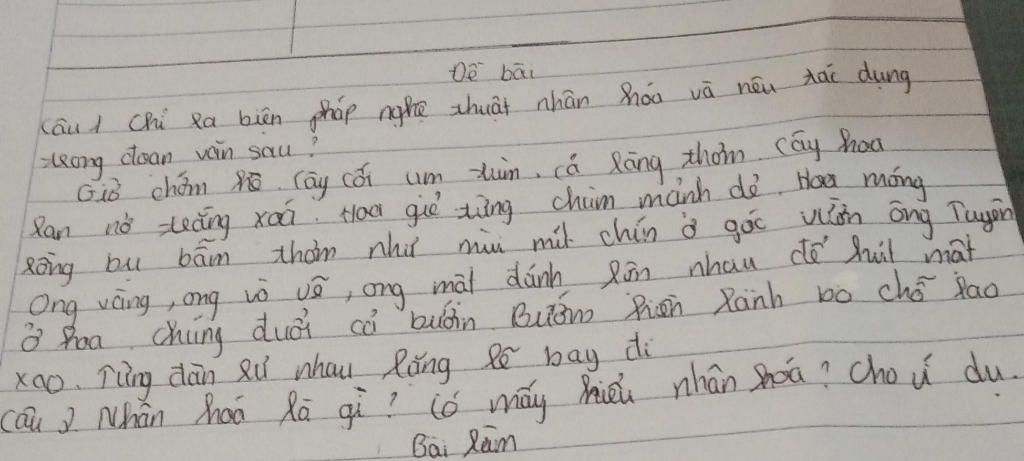 Đề bài
Câu 1 Chỉ ra biện pháp nghệ thuật nhân hoá và nêu tác dụng
trong đoạn văn sau?
Giờ chớm hè. Cây cối um tùm. cả làng thơm. cây hoa
lan nở trắng xoá. Hoa giẻ từng chùm mảnh dẻ. Hoa móng
rồng bụ bẫm thơm như mùi mít chín ở góc vườn ông Tuyên
Ong vàng, ong vò vẽ, ong mật đánh lộn nhau để hút mật
ở hoa. chúng đuổi cả bướm. Bướm hiền lành bỏ chỗ lao
xao. Từng đàn rủ nhau lặng lẽ bay đi
câu 2 Nhân hoá là gì? Có mấy kiểu nhân hoá? Cho ví dụ.
Bài làm